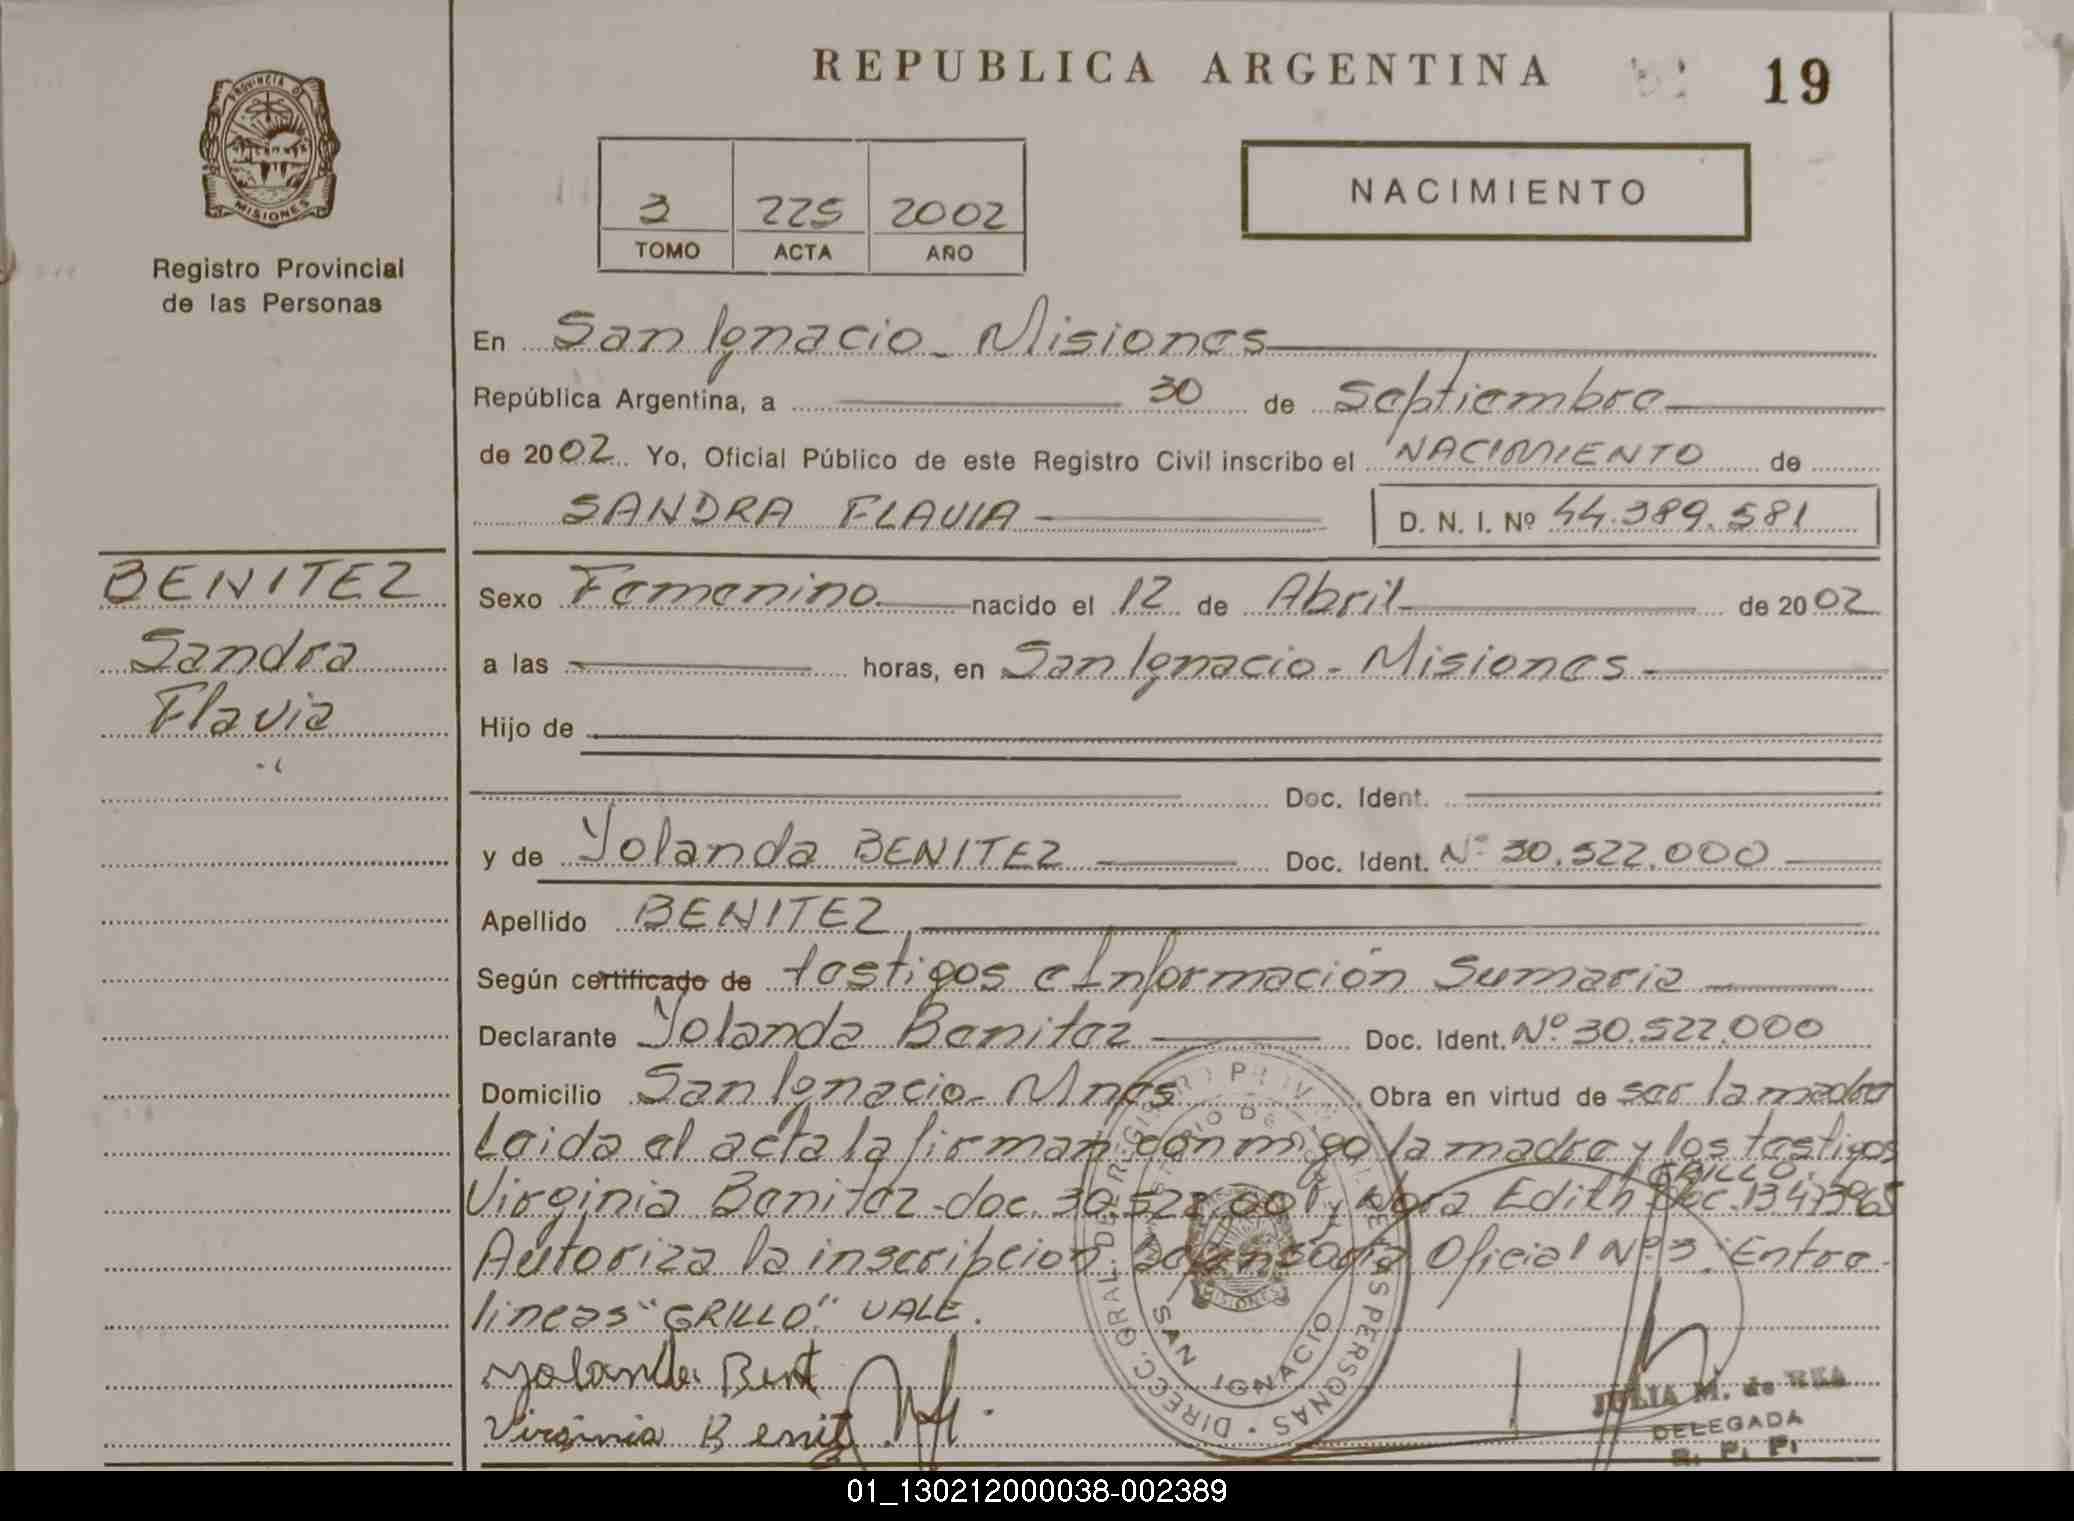 REPUBLICA ARGENTINA
19
PROVINCIA DE
MISIONES
Registro Provincial
de las Personas
3 225 2002
TOMO ACTA AÑO
NACIMIENTO
En San Ignacio - Misiones
República Argentina, a 30 de Septiembre
de 2002 Yo, Oficial Público de este Registro Civil inscribo el NACIMIENTO de
SANDRA FLAVIA D. N. I. Nº 44.389.581
BENITEZ
Sandra
Flavia
Sexo Femenino nacido el 12 de Abril de 2002
a las horas, en San Ignacio - Misiones -
Hijo de
Doc. Ident.
y de Yolanda BENITEZ Doc. Ident. Nº 30.522.000
Apellido BENITEZ
Según certificado de testigos e Información Sumaria
Declarante Yolanda Benitez Doc. Ident. Nº 30.522.000
Domicilio San Ignacio - Mnes Obra en virtud de ser la madre
Leida el acta la firman conmigo la madre y los testigos
GRILLO
Virginia Benitez - doc. 30.522.001 y Nora Edith Doc. 13.473965
Autoriza la inscripcion Defensoria Oficial Nº 3. Entre-
lineas "GRILLO" VALE.
Yolanda Benit
Virginia Benit
DIRECC. GRAL. DE REGISTRO PROV. DE LAS PERSONAS
SAN IGNACIO
MISIONES
JULIA M. de REA
DELEGADA
R. P. P.
01_130212000038-002389